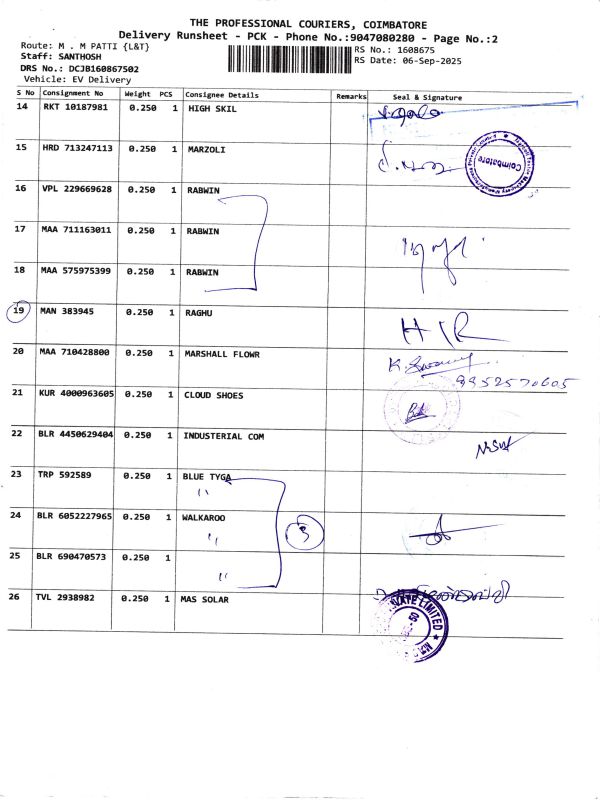 THE PROFESSIONAL COURIERS, COIMBATORE
Delivery Runsheet - PCK - Phone No.:9047080280 - Page No.:2
Route: M . M PATTI {L&T}
RS No.: 1608675
Staff: SANTHOSH
RS Date: 06-Sep-2025
DRS No.: DCJB160867502
Vehicle: EV Delivery
S No Consignment No Weight PCS Consignee Details Remarks Seal & Signature
14 RKT 10187981 0.250 1 HIGH SKIL
15 HRD 713247113 0.250 1 MARZOLI
Coimbatore
16 VPL 229669628 0.250 1 RABWIN
17 MAA 711163011 0.250 1 RABWIN
18 MAA 575975399 0.250 1 RABWIN
19 MAN 383945 0.250 1 RAGHU
20 MAA 710428800 0.250 1 MARSHALL FLOWR
9952570605
21 KUR 4000963605 0.250 1 CLOUD SHOES
22 BLR 4450629404 0.250 1 INDUSTERIAL COM
23 TRP 592589 0.250 1 BLUE TYGA
"
24 BLR 6052227965 0.250 1 WALKAROO
" 3
25 BLR 690470573 0.250 1
"
26 TVL 2938982 0.250 1 MAS SOLAR
VATE LIMITED